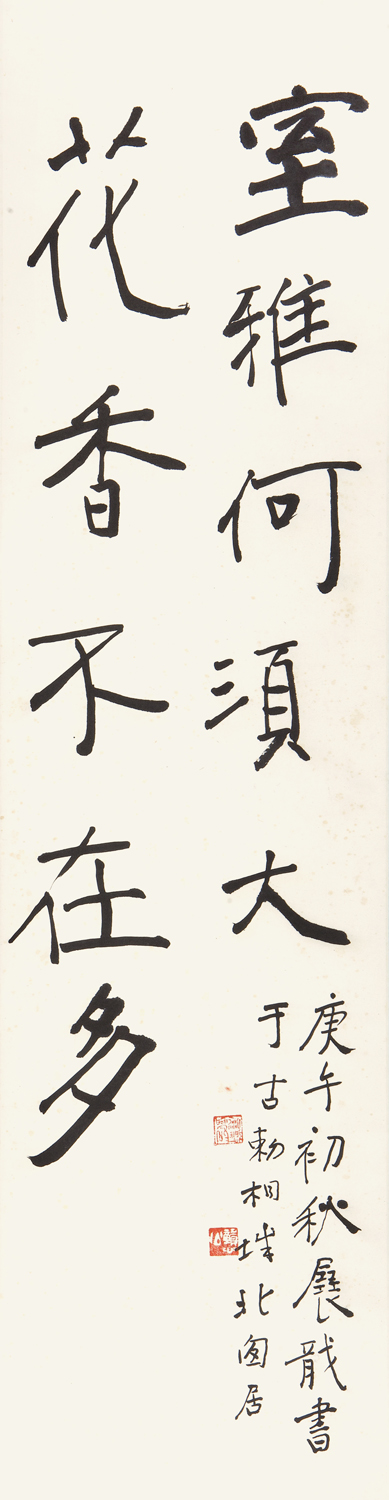 室雅何須大
花香不在多
庚午初秋展書
于古勅相北居